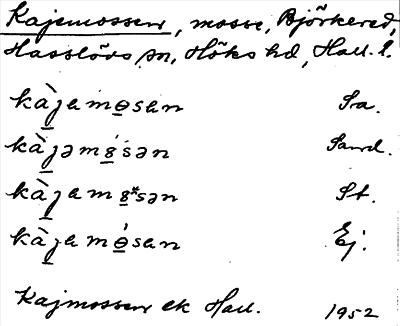 Kajemossen, mosse, Björkered,
Hasslövs sn, Höks hd, Hall. l.
kàjamɵsan Sa.
kàjəm8́sən Sand.
kàjam8*sən St.
kàjamɵ́san Ej.
Kajmossen ek Hall. 1952